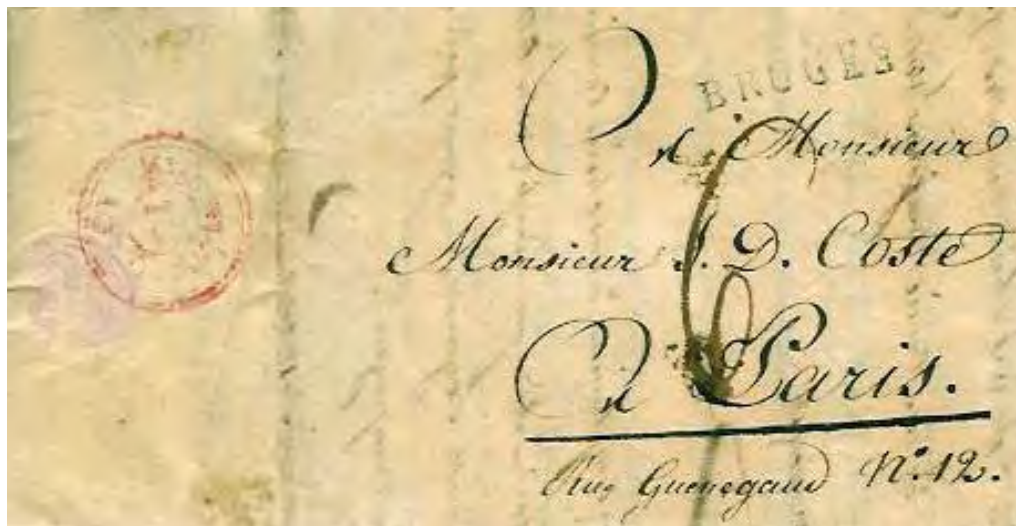 BRUGES
A Monsieur
Monsieur J. D. Coste
A Paris.
Rue Guenegaud N.° 12.
6